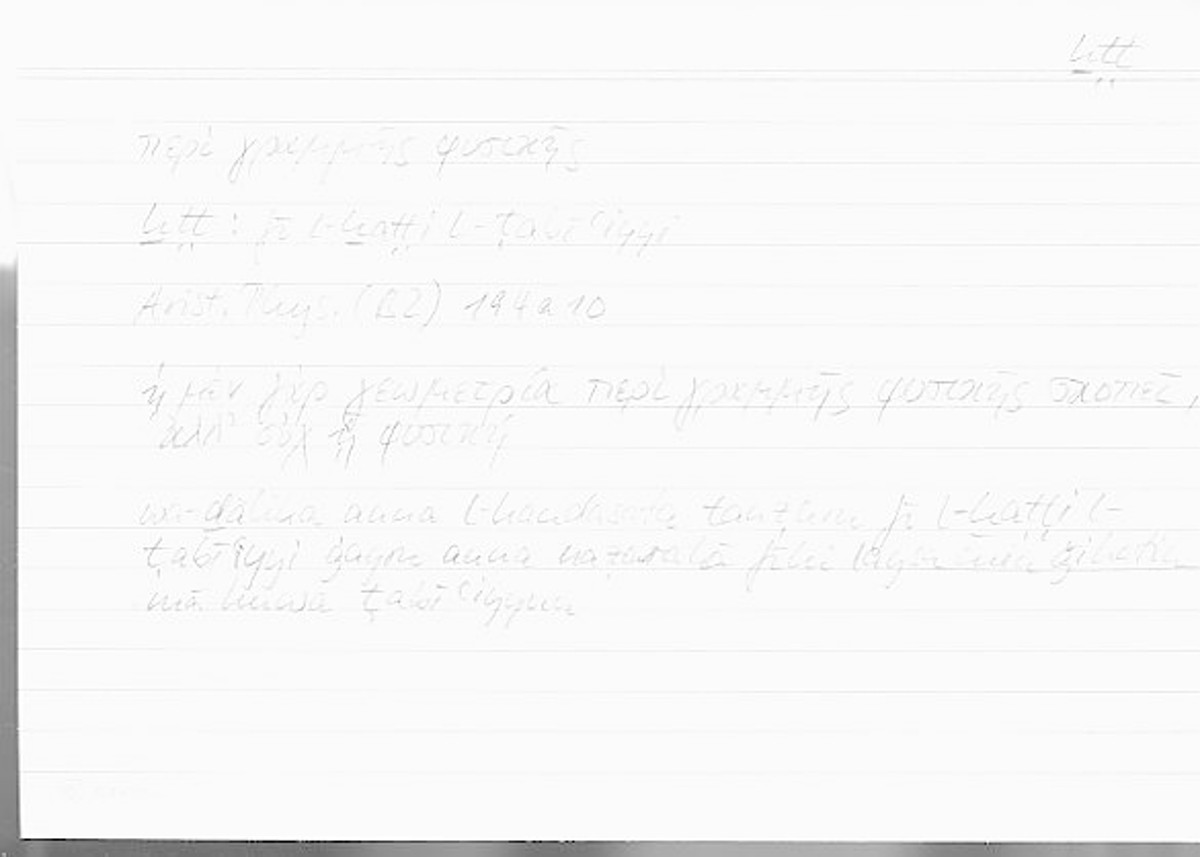 ḫṭṭ
περὶ γραμμῆς φυσικῆς
ḫṭṭ : fī l-ḫaṭṭi l-ṭabīʿiyyi
Arist. Phys. (B2) 194 a 10
ἡ μὲν γὰρ γεωμετρία περὶ γραμμῆς φυσικῆς σκοπεῖ,
ἀλλ' οὐχ ᾗ φυσική
wa-ḏālika anna l-handasata tanẓuru fī l-ḫaṭṭi l-
ṭabīʿiyyi ġayra anna naẓarahā fīhi laysa min ǧihati
mā huwa ṭabīʿiyyun